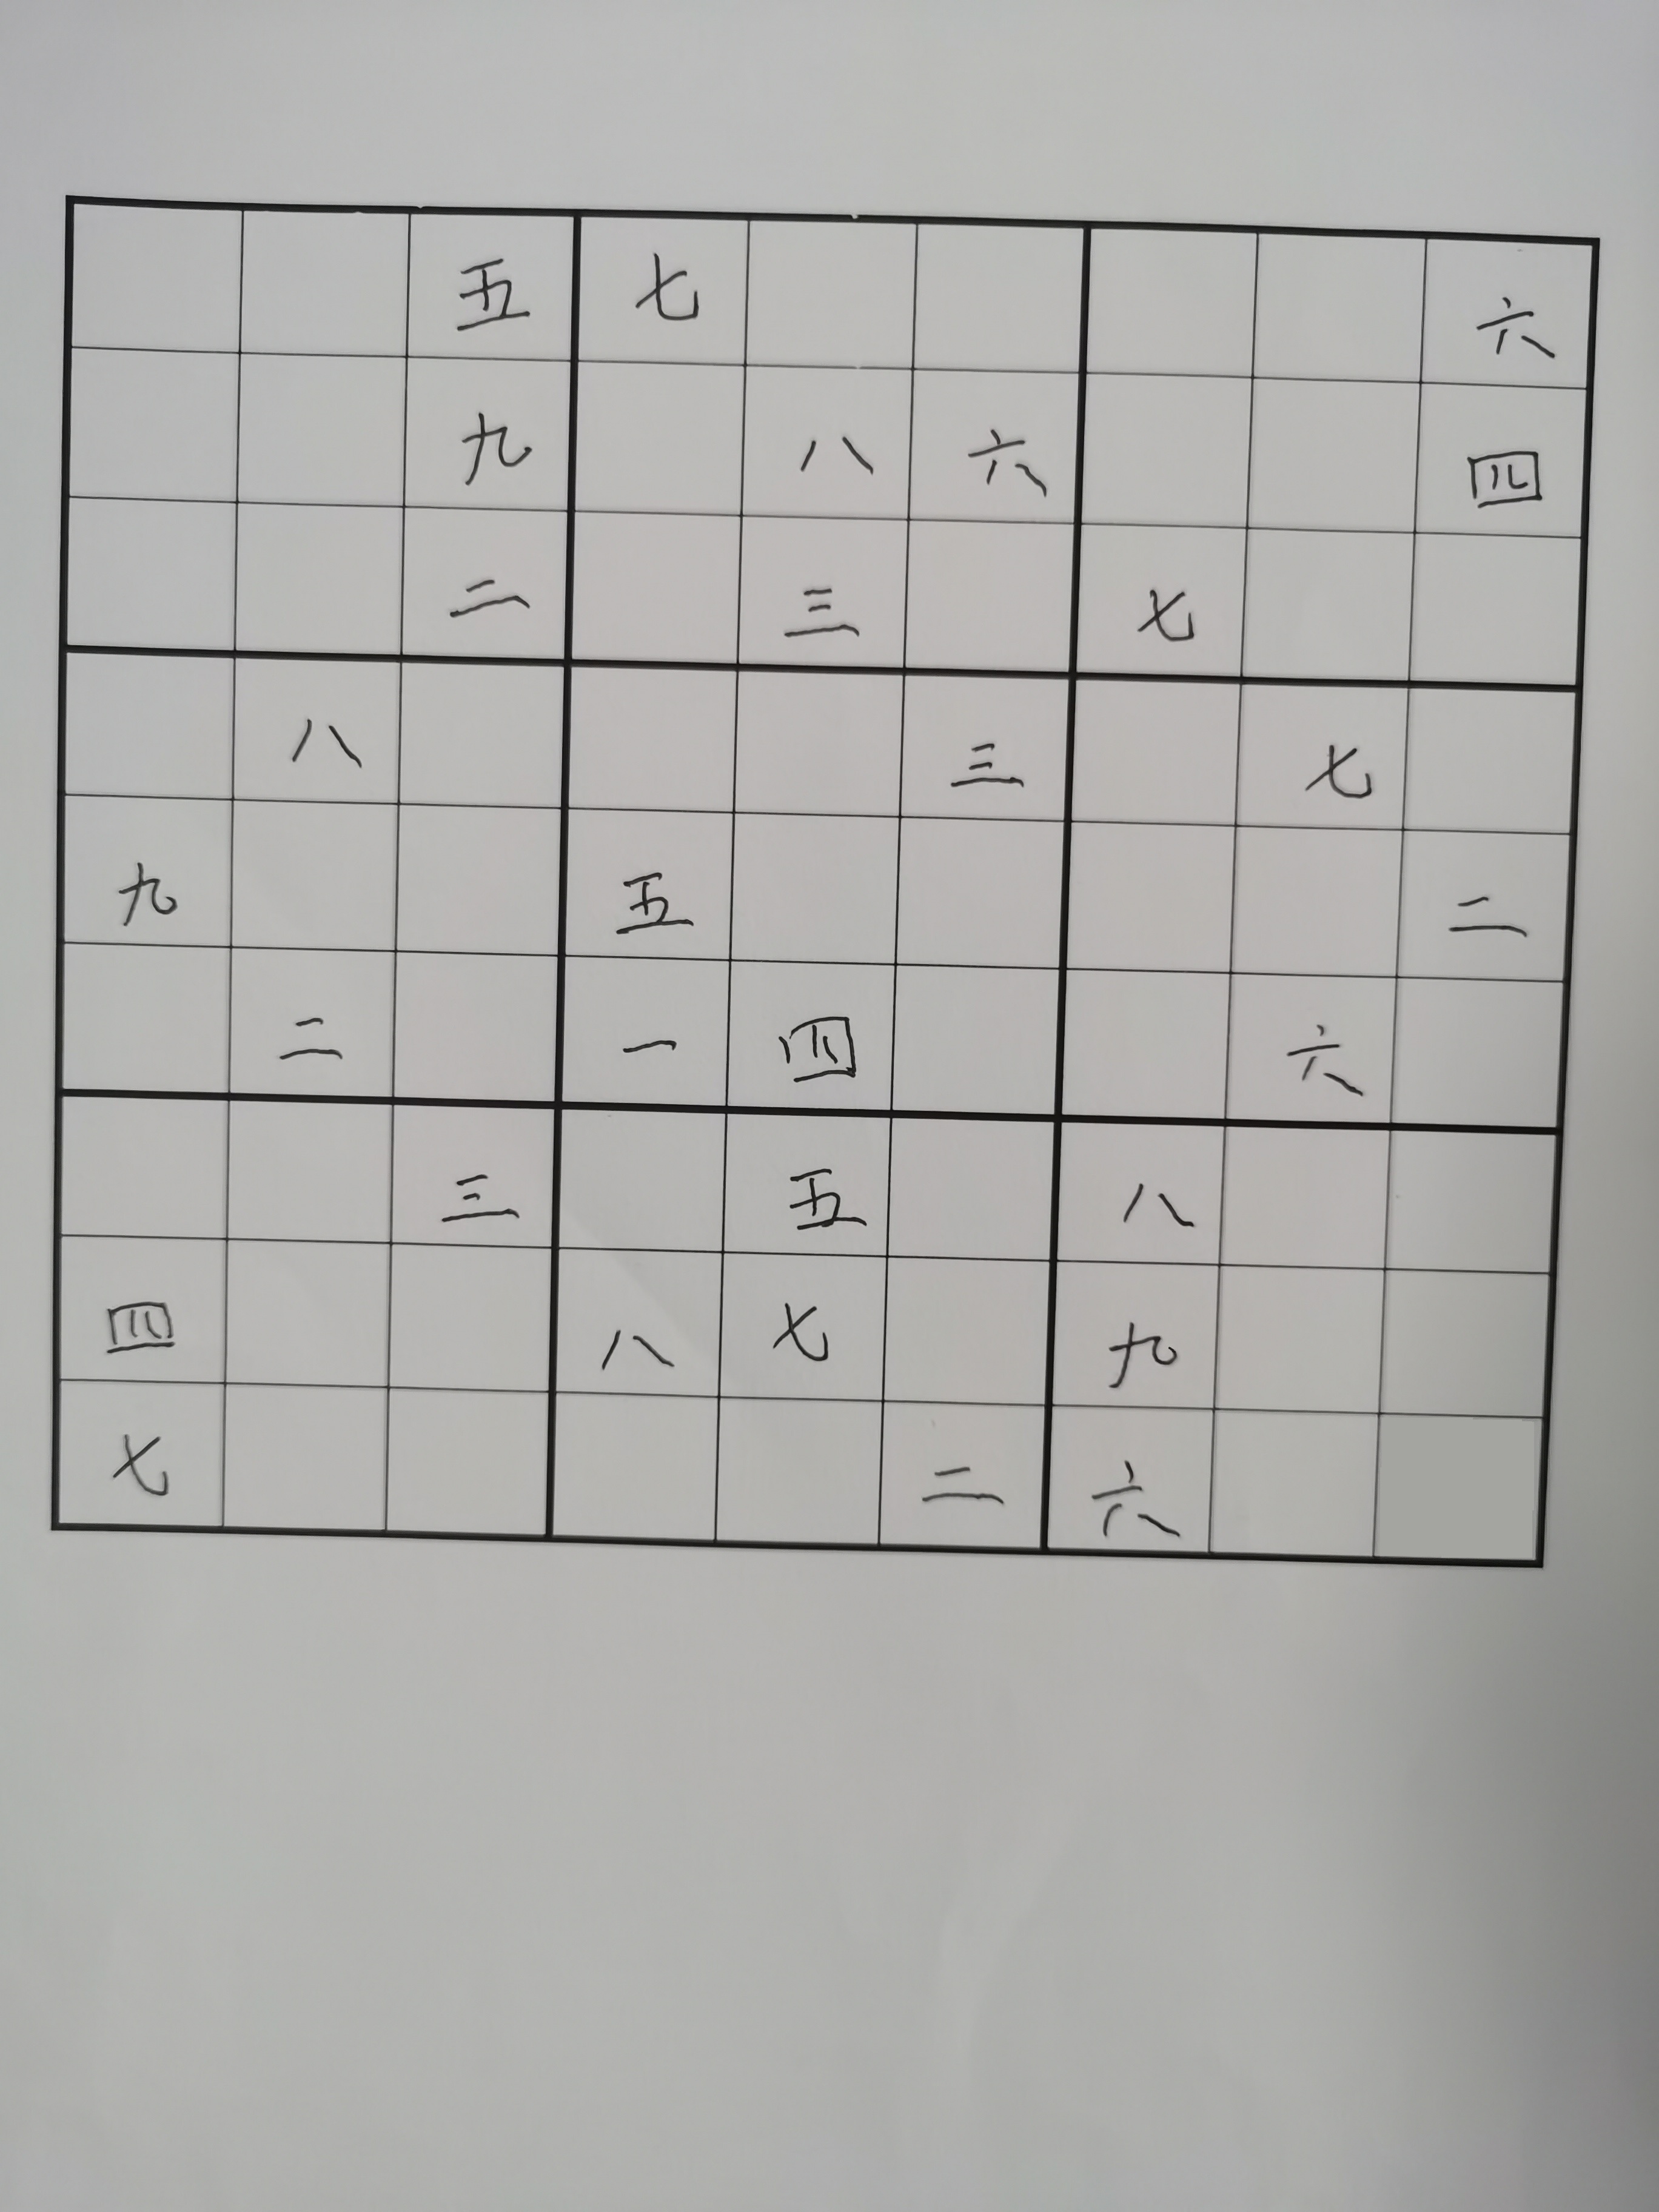 五 七 六
九 八 六 四
二 三 七
八 三 七
九 五 二
二 一 四 六
三 五 八
四 八 七 九
七 二 六